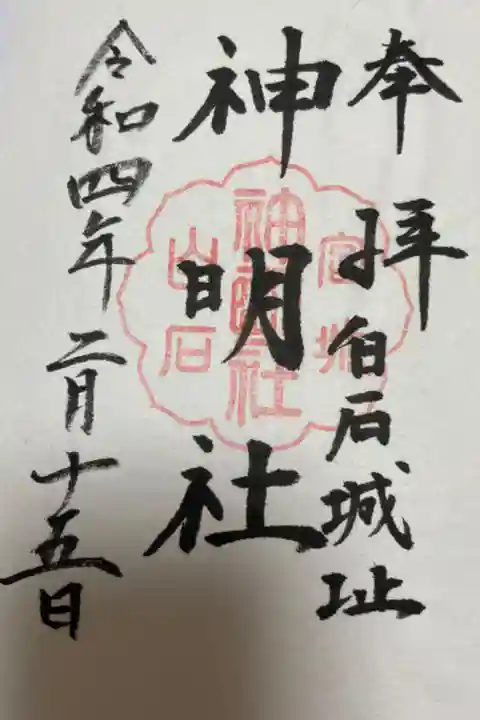 奉拝
白石城址
神明社
令和四年二月十五日
宮城
神明社
白石